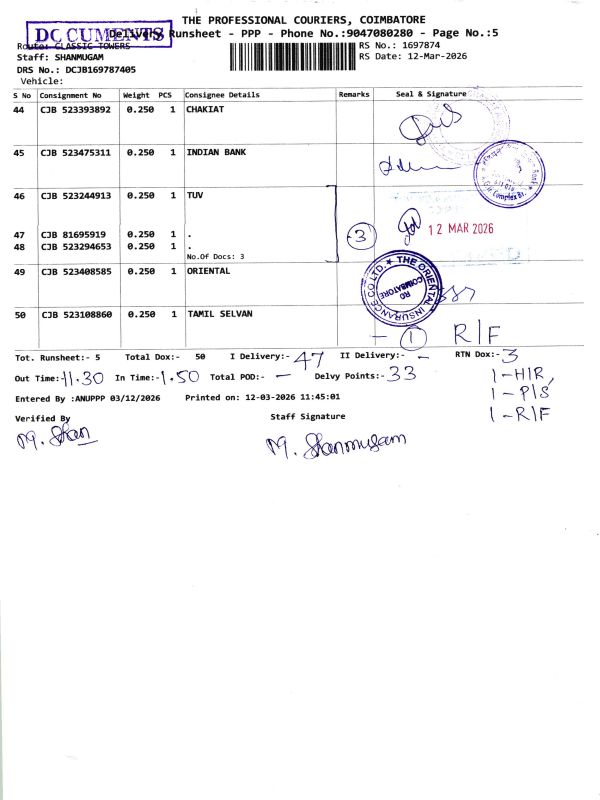 THE PROFESSIONAL COURIERS, COIMBATORE
DOCUMENTS
Delivery Runsheet - PPP - Phone No.:9047080280 - Page No.:5
Route: CLASSIC TOWERS
RS No.: 1697874
Staff: SHANMUGAM
RS Date: 12-Mar-2026
DRS No.: DCJB169787405
Vehicle:
S No Consignment No Weight PCS Consignee Details Remarks Seal & Signature
44 CJB 523393892 0.250 1 CHAKIAT
45 CJB 523475311 0.250 1 INDIAN BANK
46 CJB 523244913 0.250 1 TUV
12 MAR 2026
47 CJB 81695919 0.250 1 .
3
48 CJB 523294653 0.250 1 .
No.Of Docs: 3
49 CJB 523408585 0.250 1 ORIENTAL
THE ORIENTAL INSURANCE CO LTD.
RO
COIMBATORE
50 CJB 523108860 0.250 1 TAMIL SELVAN
- 1 R/F
Tot. Runsheet:- 5 Total Dox:- 50 I Delivery:- 47 II Delivery:- - RTN Dox:- 3
Out Time:- 11.30 In Time:- 1.50 Total POD:- - Delvy Points:- 33
1 - H/R,
1 - P/S
1 - R/F
Entered By :ANUPPP 03/12/2026 Printed on: 12-03-2026 11:45:01
Verified By Staff Signature
M. Shan
M. Shanmugam